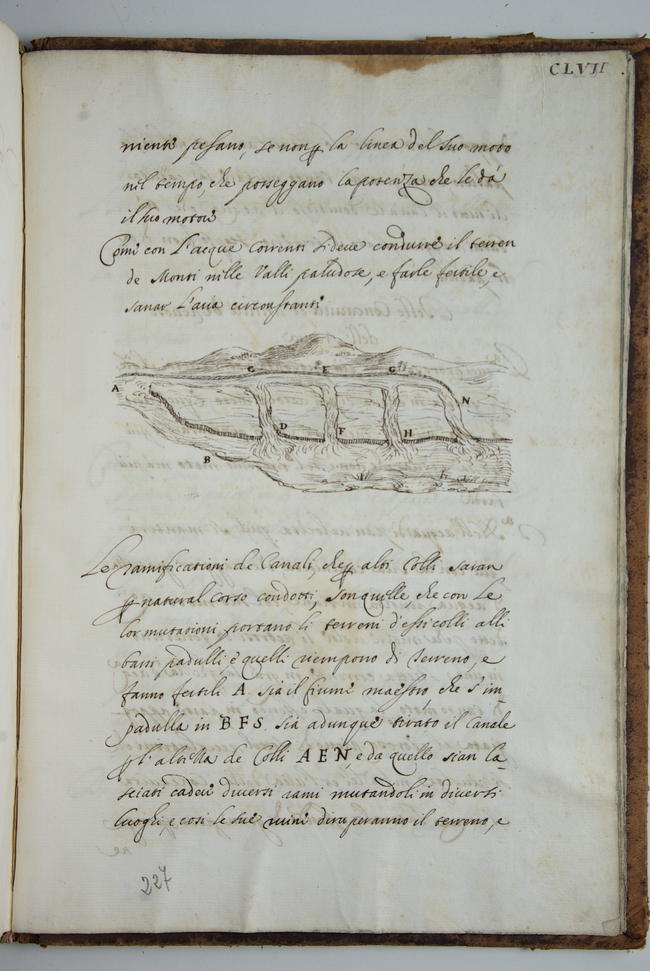 CLVII
niente pesano, se non p la linea del suo moto
nel tempo, che posseggano la potenza che le dà
il suo motore
Come con l'acque correnti si deve condurre il terren
de Monti nelle Valli paludose, e farle fertile, e
sanar l'aria circonstante
A
C
E
G
N
D
F
H
B
Le ramificationi de Canali, che p alti Colli saran
p natural corso condotti, son quelle che con le
lor mutationi portano li terreni d'essi colli alli
bassi padulli e quelli riempono di terreno, e
fanno fertili A. sia il fiume maestro, che s'im-
padulla in BFS. sia adunque tirato il Canale
p l'altezza de Colli AEN, e da quello sian la-
sciati cadere diversi rami mutandoli in diversi
luoghi, e cosi le sue ruine diruperanno il terreno, e
227